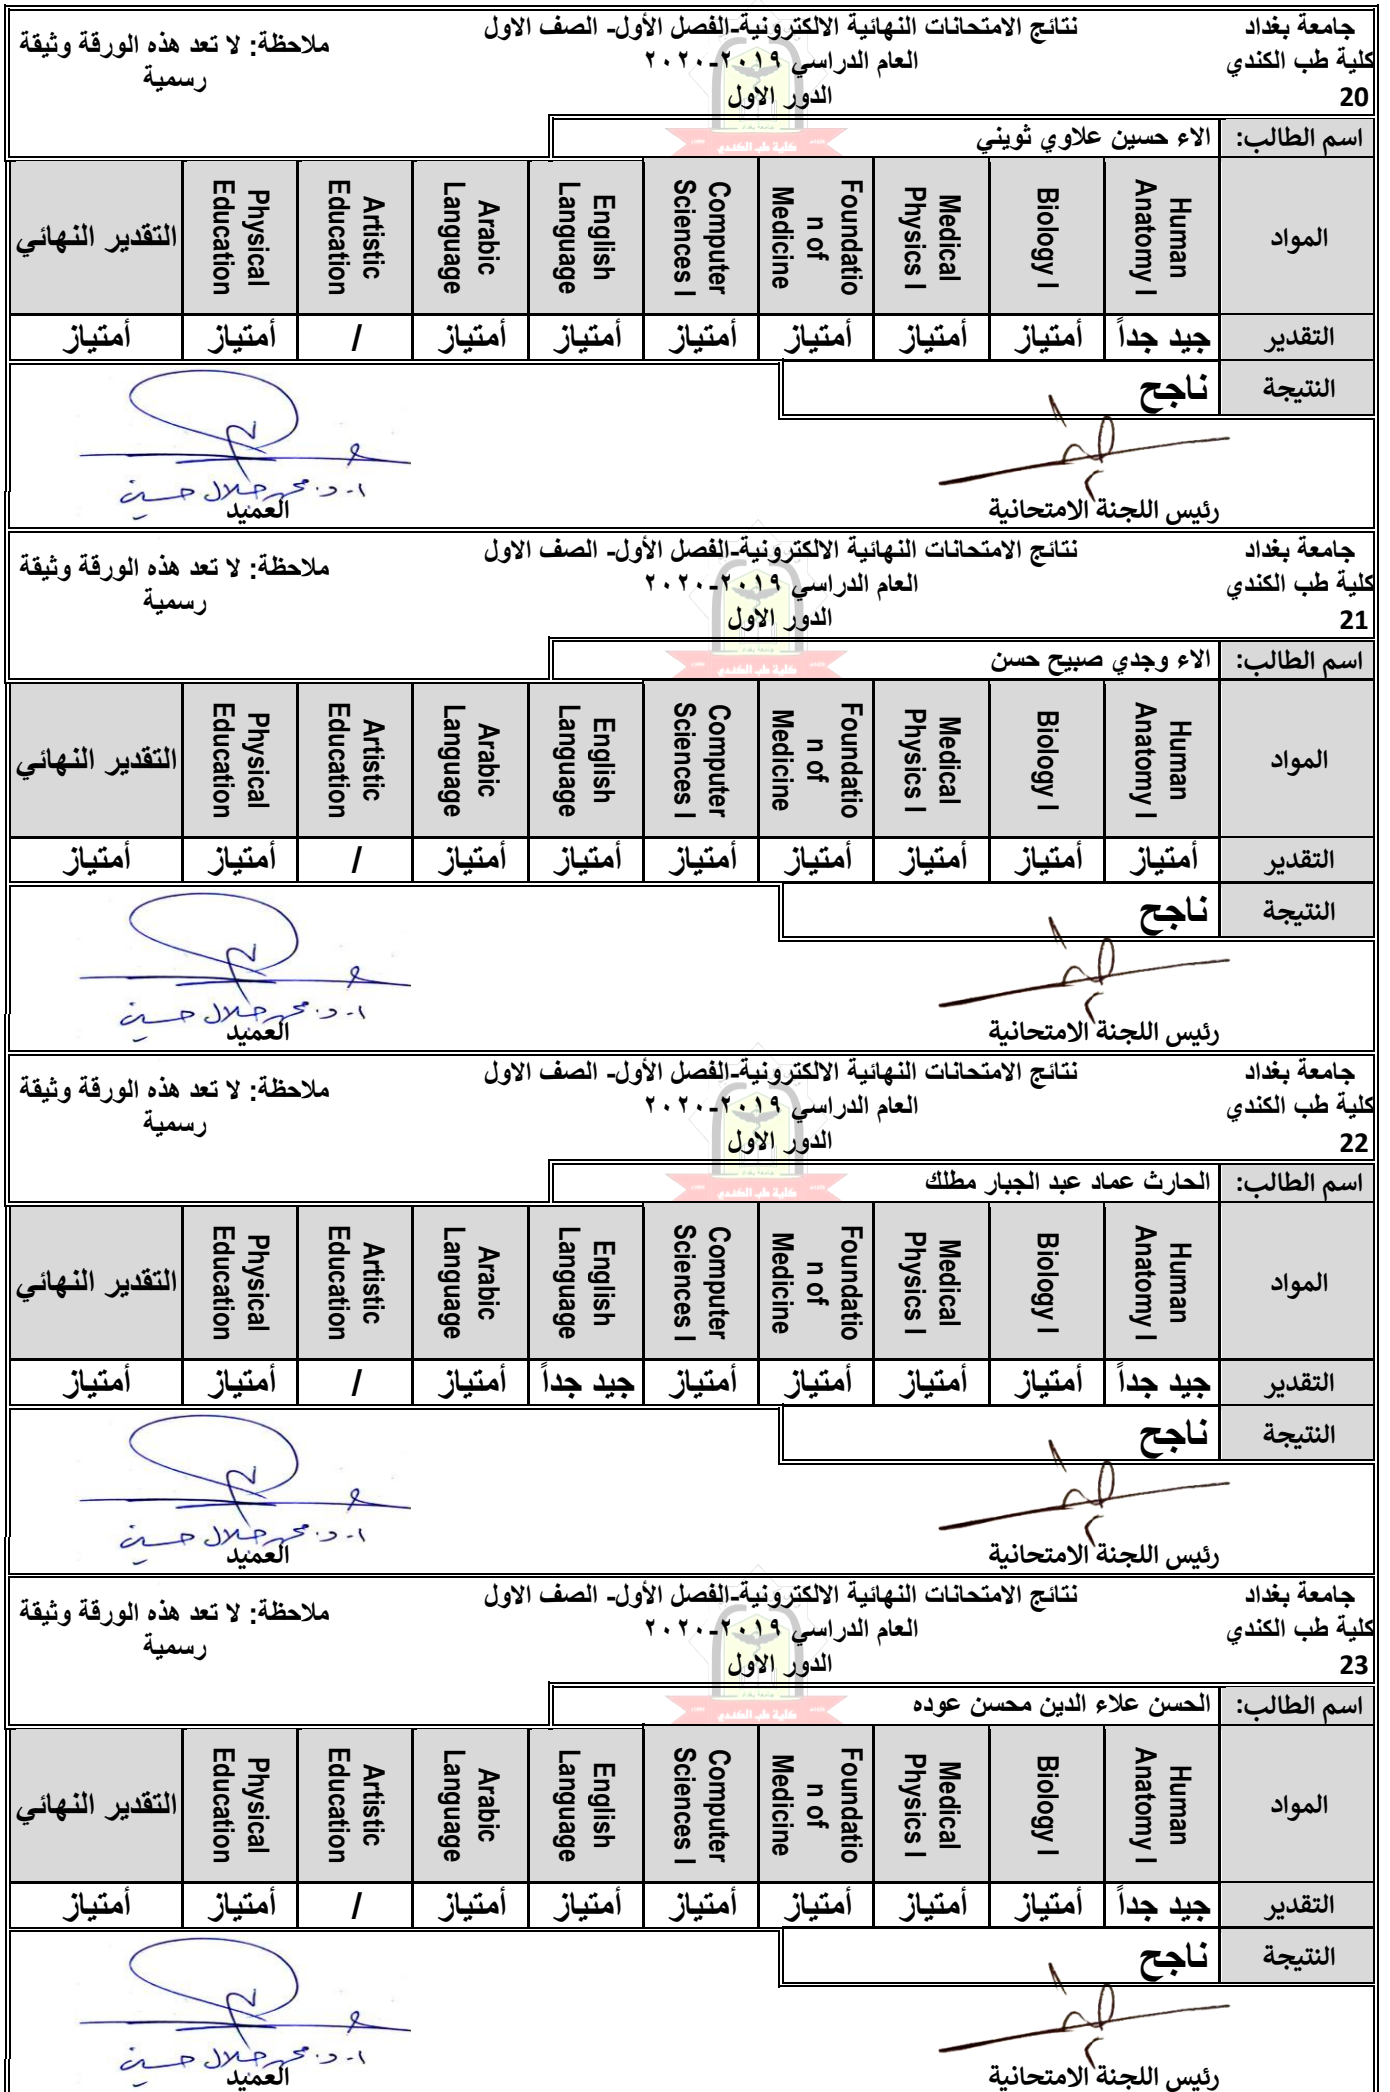 جامعة بغداد
كلية طب الكندي
20
نتائج الامتحانات النهائية الالكترونية-الفصل الأول- الصف الاول
العام الدراسي ٢٠١٩-٢٠٢٠
الدور الاول
ملاحظة: لا تعد هذه الورقة وثيقة
رسمية
اسم الطالب: الاء حسين علاوي ثويني
المواد Human Anatomy I Biology I Medical Physics I Foundatio n of Medicine Computer Sciences I English Language Arabic Language Artistic Education Physical Education التقدير النهائي
التقدير جيد جداً أمتياز أمتياز أمتياز أمتياز أمتياز أمتياز / أمتياز أمتياز
النتيجة ناجح
أ. د. محمد جلال حسين
رئيس اللجنة الامتحانية العميد
جامعة بغداد
كلية طب الكندي
21
نتائج الامتحانات النهائية الالكترونية-الفصل الأول- الصف الاول
العام الدراسي ٢٠١٩-٢٠٢٠
الدور الاول
ملاحظة: لا تعد هذه الورقة وثيقة
رسمية
اسم الطالب: الاء وجدي صبيح حسن
المواد Human Anatomy I Biology I Medical Physics I Foundatio n of Medicine Computer Sciences I English Language Arabic Language Artistic Education Physical Education التقدير النهائي
التقدير أمتياز أمتياز أمتياز أمتياز أمتياز أمتياز أمتياز / أمتياز أمتياز
النتيجة ناجح
أ. د. محمد جلال حسين
رئيس اللجنة الامتحانية العميد
جامعة بغداد
كلية طب الكندي
22
نتائج الامتحانات النهائية الالكترونية-الفصل الأول- الصف الاول
العام الدراسي ٢٠١٩-٢٠٢٠
الدور الاول
ملاحظة: لا تعد هذه الورقة وثيقة
رسمية
اسم الطالب: الحارث عماد عبد الجبار مطلك
المواد Human Anatomy I Biology I Medical Physics I Foundatio n of Medicine Computer Sciences I English Language Arabic Language Artistic Education Physical Education التقدير النهائي
التقدير جيد جداً أمتياز أمتياز أمتياز أمتياز جيد جداً أمتياز / أمتياز أمتياز
النتيجة ناجح
أ. د. محمد جلال حسين
رئيس اللجنة الامتحانية العميد
جامعة بغداد
كلية طب الكندي
23
نتائج الامتحانات النهائية الالكترونية-الفصل الأول- الصف الاول
العام الدراسي ٢٠١٩-٢٠٢٠
الدور الاول
ملاحظة: لا تعد هذه الورقة وثيقة
رسمية
اسم الطالب: الحسن علاء الدين محسن عوده
المواد Human Anatomy I Biology I Medical Physics I Foundatio n of Medicine Computer Sciences I English Language Arabic Language Artistic Education Physical Education التقدير النهائي
التقدير جيد جداً أمتياز أمتياز أمتياز أمتياز أمتياز أمتياز / أمتياز أمتياز
النتيجة ناجح
أ. د. محمد جلال حسين
رئيس اللجنة الامتحانية العميد